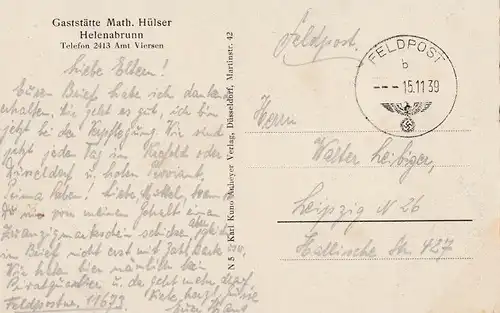 Gaststätte Math. Hülser
Helenabrunn
Telefon 2413 Amt Viersen
Liebe Eltern!
Euren Brief habe ich dankend
erhalten. Mir geht es gut, ich bin
jetzt bei der Verpflegung. Wir sind
jetzt jeden Tag in Krefeld oder
Düsseldorf u. holen Proviant,
Prima Leben! Liebe
Du mir von meinem Gehalt einen
Zwanzigmarkschein schicken, aber
im Brief nicht erst mit
Wir haben hier nämlich kein
Privatquartier u. da geht mehr
Feldpostnr. 11673. Viele herzl. Grüsse
Euer Hans
N 5 Karl Kuno Mäheyer Verlag, Düsseldorf, Martinstr. 42
Feldpost.
FELDPOST
b
--- 15.11 39
Herrn
Walter Leibiger,
Leipzig N 26
Hallische Str. 427